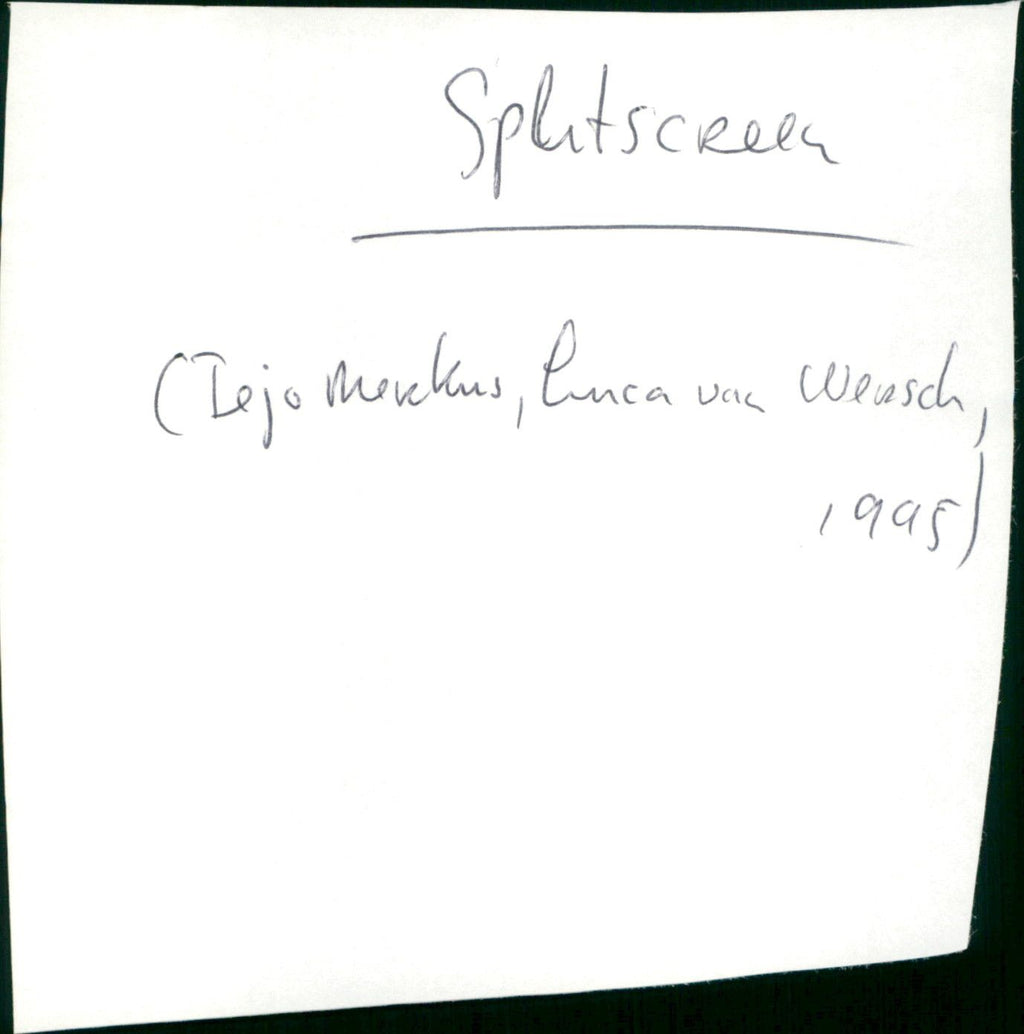 Splitscreen
(Tejo Merkus, Luca van Wersch,
1995)